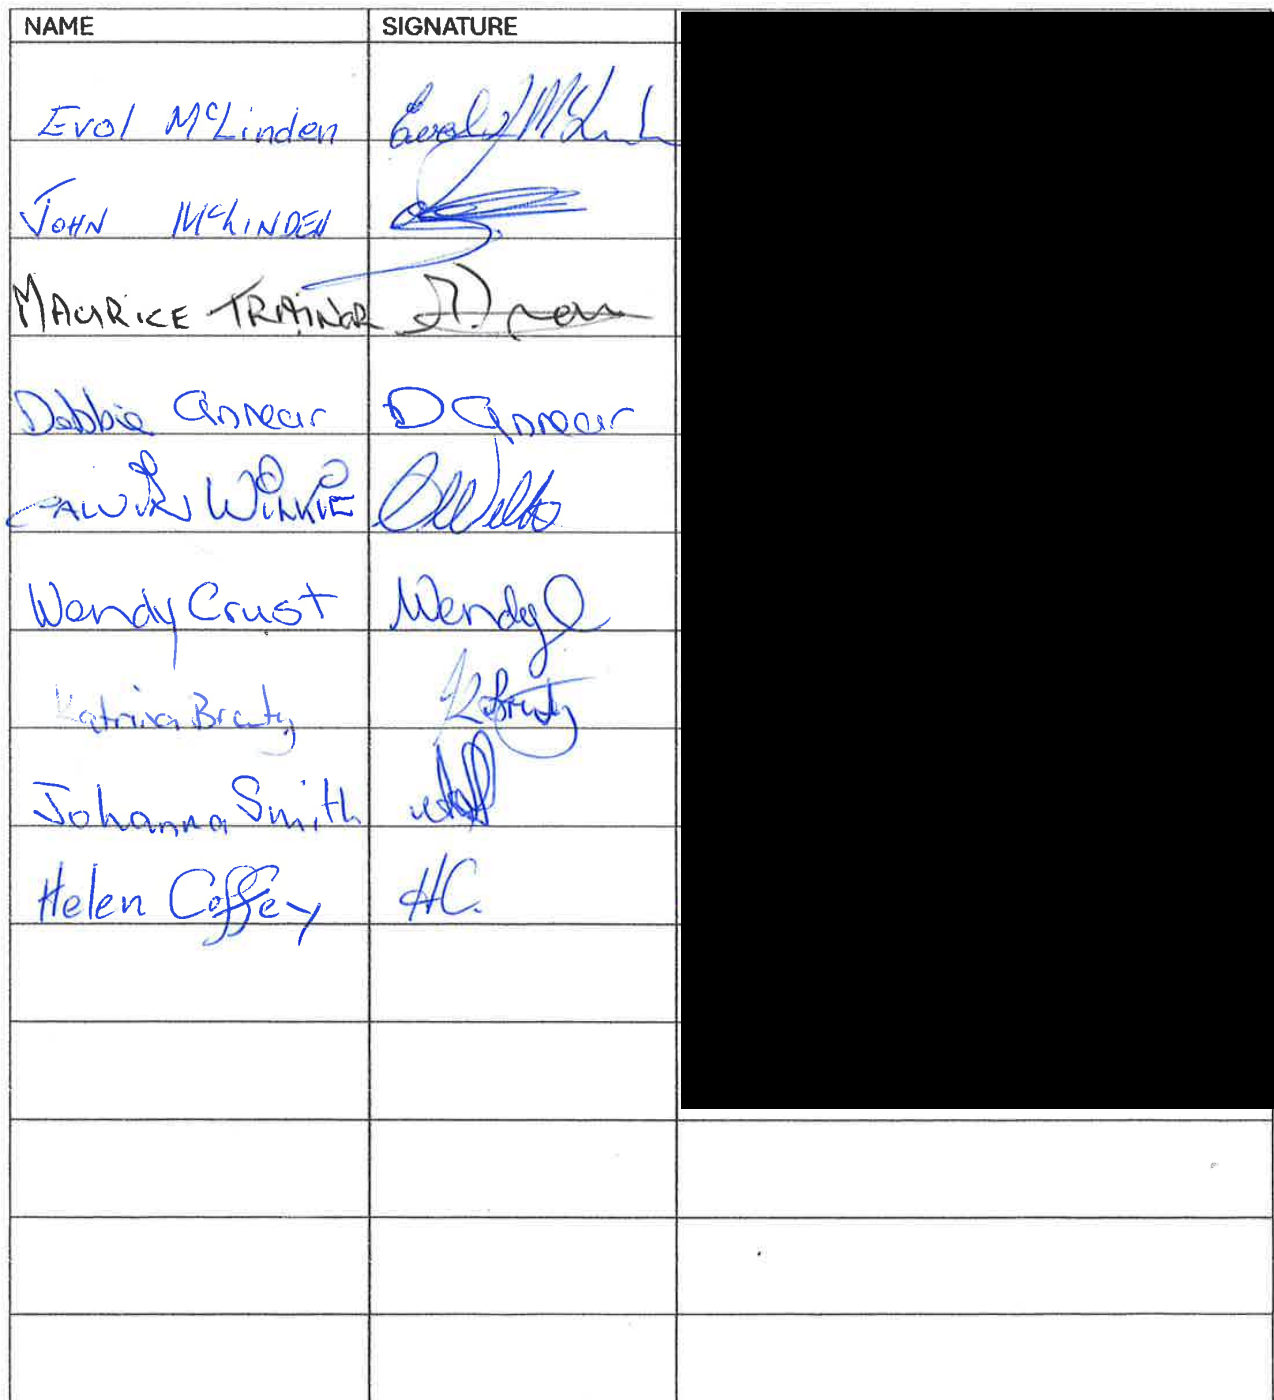 NAME SIGNATURE
Evol McLinden Evol McLinden
JOHN McLINDEN
MAURICE TRAINOR
Debbie Annear D Annear
WILKIE
Wendy Crust Wendy C
Katrina
Johanna Smith
Helen Coffey HC.